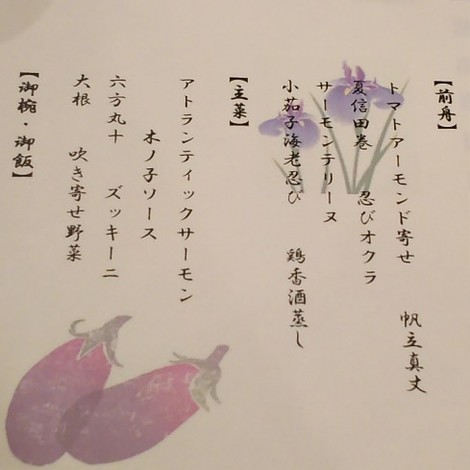 【前舟】
トマトアーモンド寄せ 帆立真丈
夏信田巻 忍びオクラ
サーモンテリーヌ
小茄子海老忍び 鶏香酒蒸し
【主菜】
アトランティックサーモン
木ノ子ソース
六方丸十 ズッキーニ
大根 吹き寄せ野菜
【御椀・御飯】